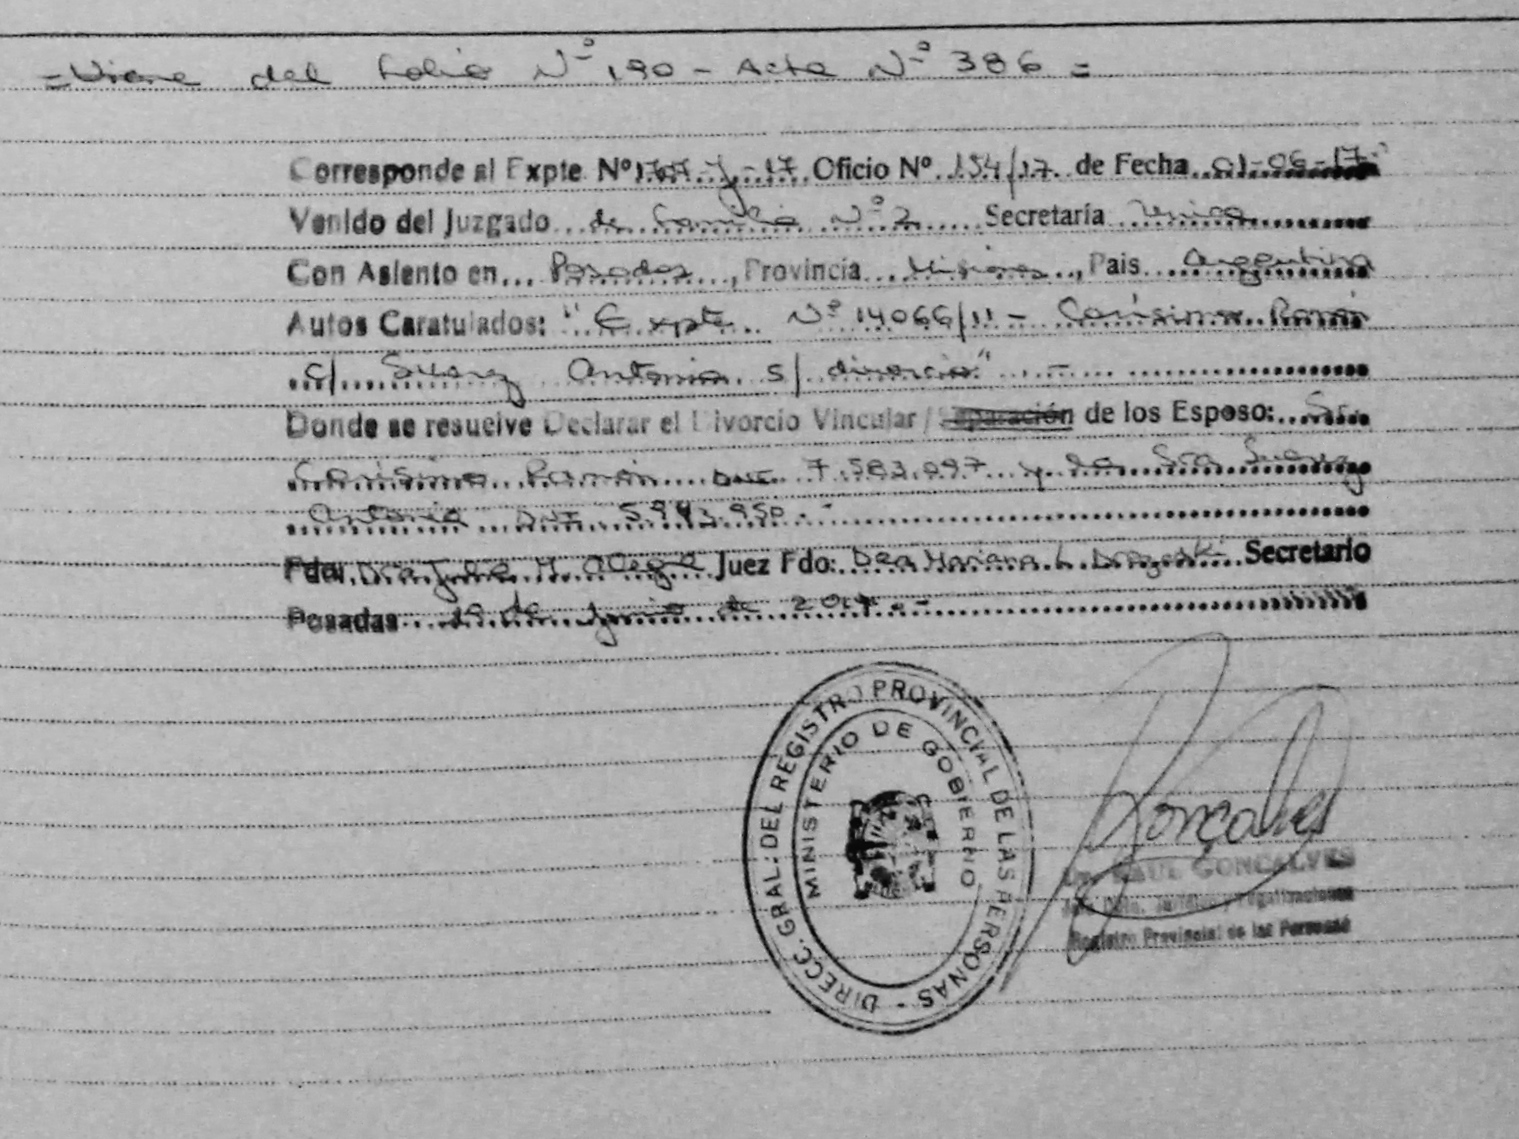 = Viene del Folio Nº 190 - Acta Nº 386 =
Corresponde al Expte Nº 1707-J-17 Oficio Nº 154/17 de Fecha 01-06-17
Venido del Juzgado de Familia Nº 2 Secretaría Unica
Con Asiento en Posadas, Provincia Misiones, Pais Argentina
Autos Caratulados: "Expte Nº 14066/11 - Carísimo Ramón
c/ Suarez Antonia s/ divorcio" -
Donde se resuelve Declarar el Divorcio Vincular / Separación de los Esposo: Sr.
Carísimo Ramón DNI 7.583.097 y de la Sra Suarez
Antonia DNI 5.943.950 -
Fdo. Dra Julia M. Alegre Juez Fdo: Dra Mariana L. Secretario
Posadas 19 de Junio de 2017.-
DIRECC. GRAL. DEL REGISTRO PROVINCIAL DE LAS PERSONAS -
MINISTERIO DE GOBIERNO
Gonçalves
Dr. RAUL GONCALVES
Jefe Dpto. Jurídico y Legalizaciones
Registro Provincial de las Personas